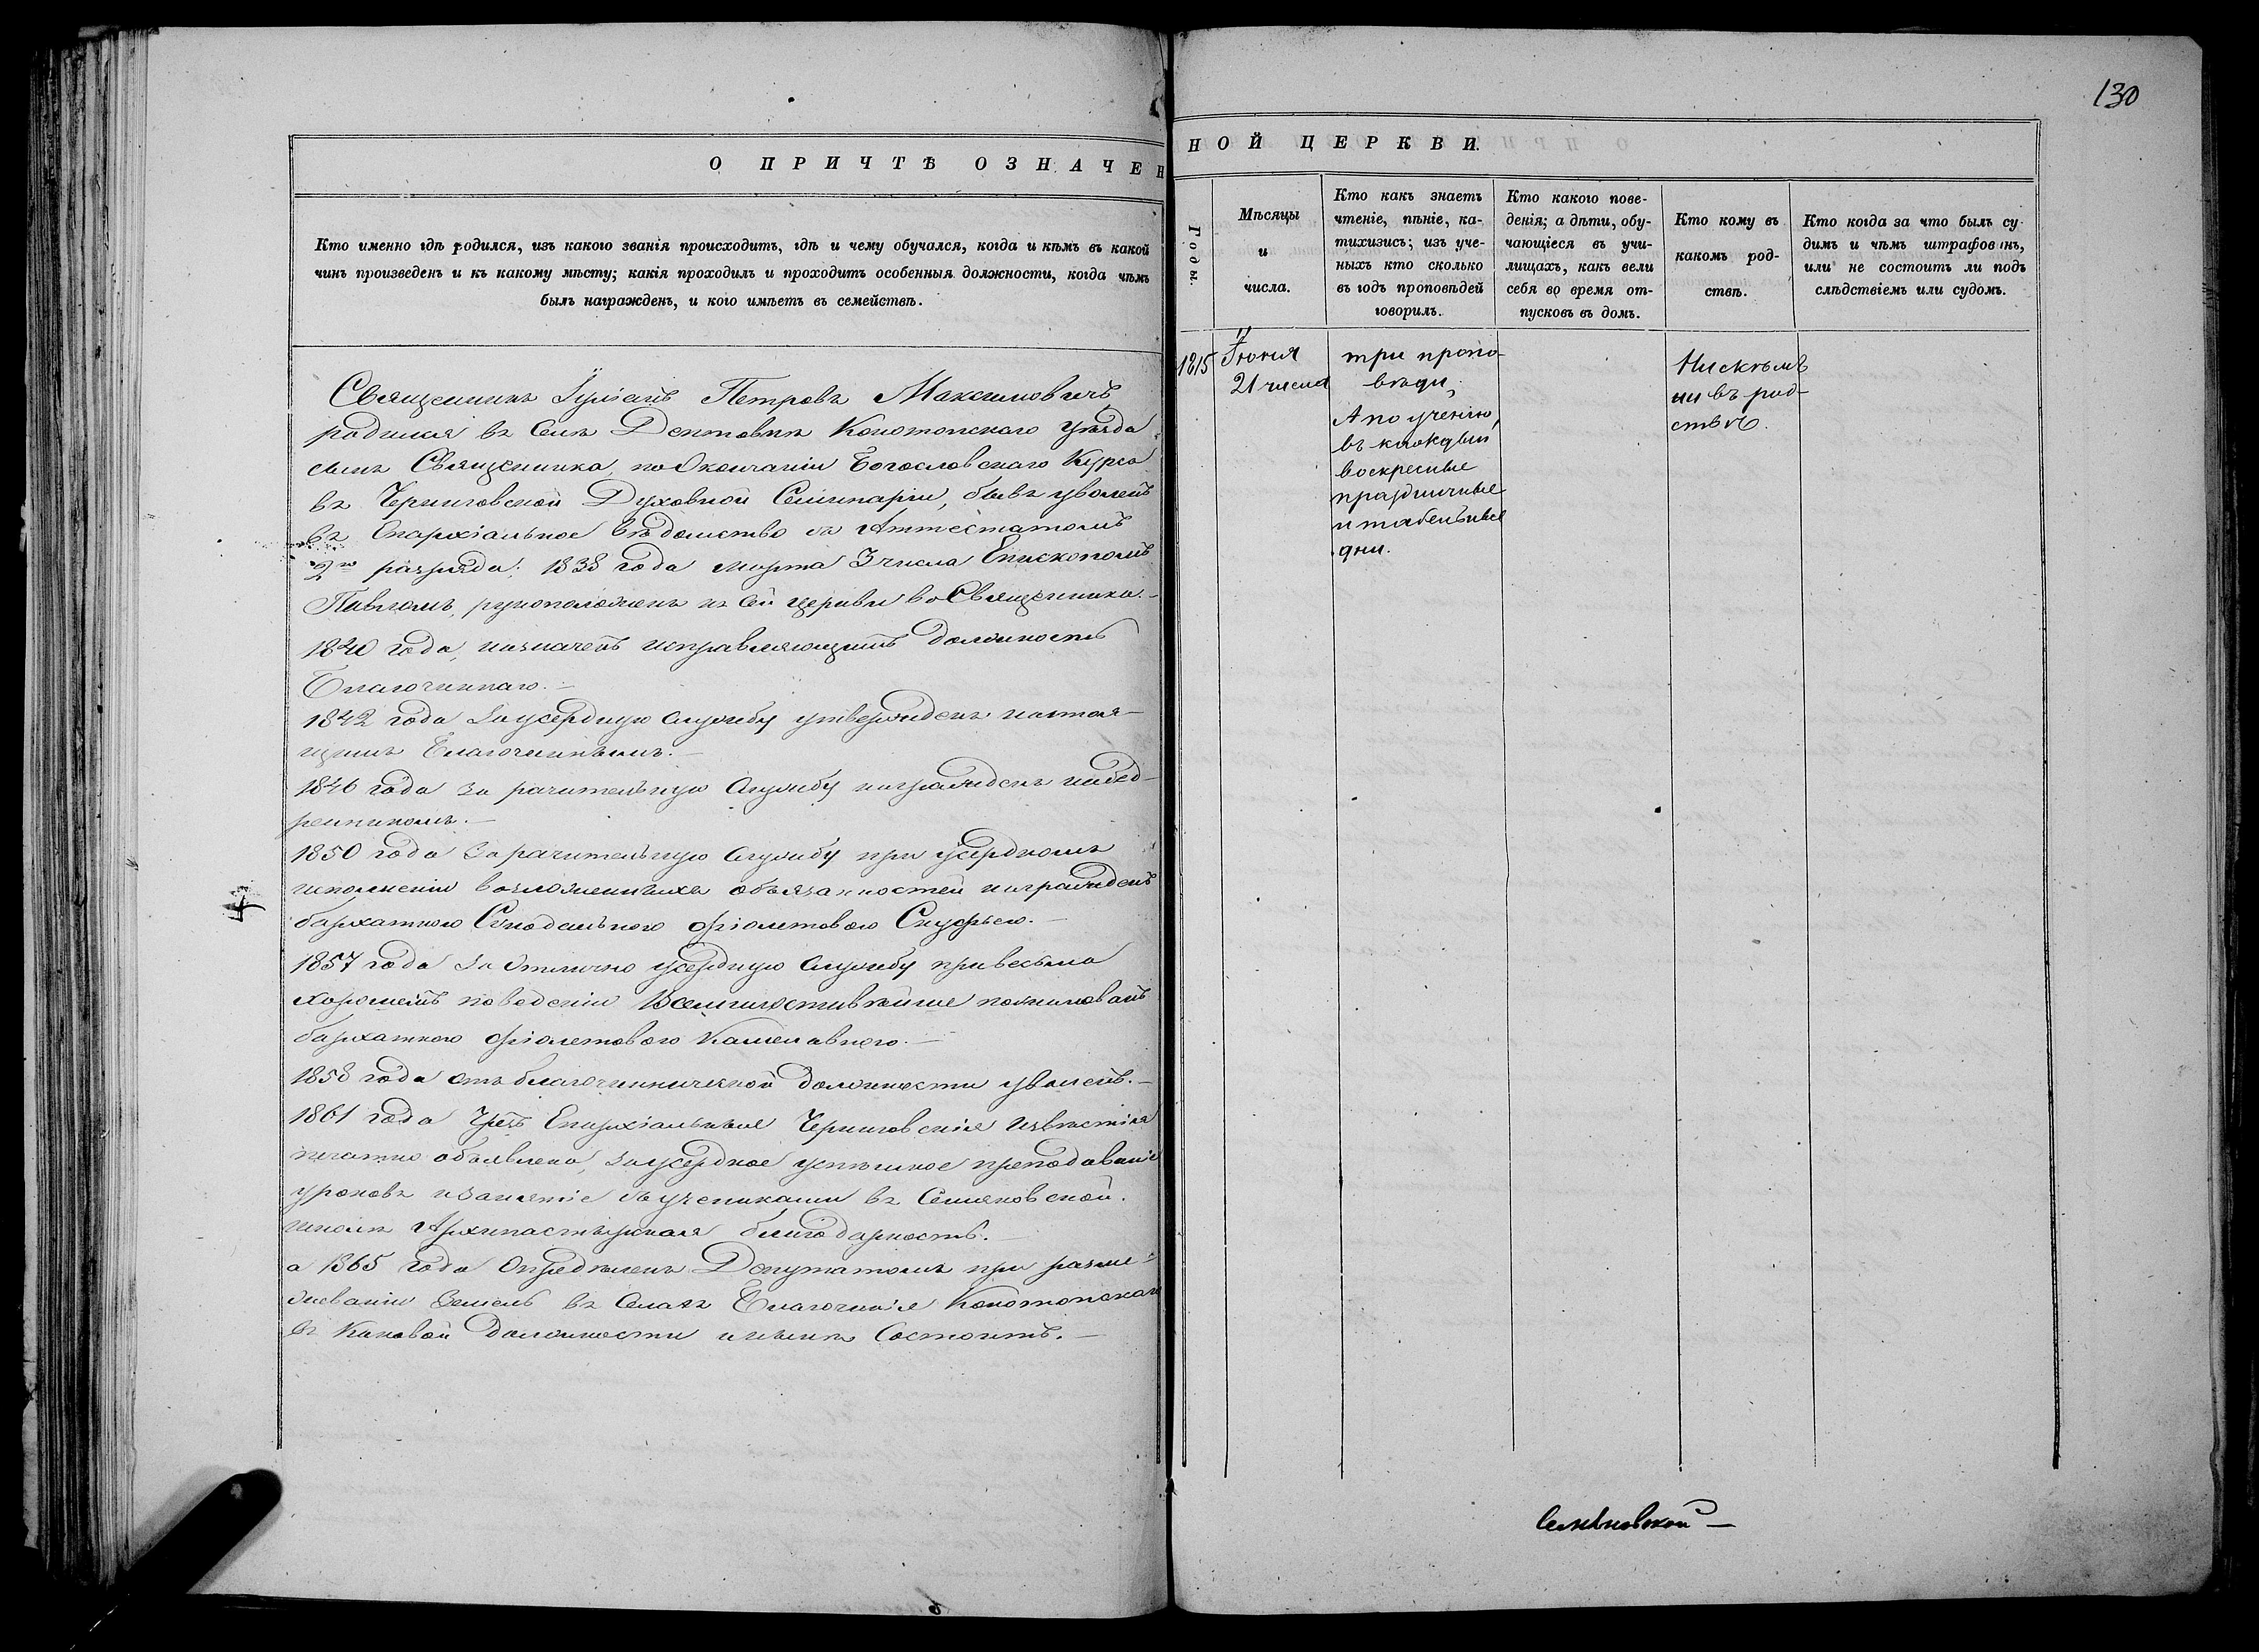 130
О ПРИЧТѢ ОЗНАЧЕН
НОЙ ЦЕРКВИ.
Кто именно гдѣ родился, изъ какого званія происходитъ, гдѣ и чему обучался, когда и кѣмъ въ какой
чинъ произведенъ и къ какому мѣсту; какія проходилъ и проходитъ особенныя должности, когда чѣмъ
былъ награжденъ, и кого имѣетъ въ семействѣ.
Священникъ Іуліанъ Петровъ Максимовичъ,
родился въ Селѣ Дептовкѣ Конотопскаго Уѣзда
сынъ Священника, по Окончаніи Богословскаго Курса
въ Черниговской Духовной Семинаріи, бывъ уволенъ
въ Епархіальное вѣдомство съ Аттестатомъ
2го разряда; 1838 года марта 3 числа Епископомъ
Павломъ, рукоположенъ къ сей церкви во Священника.
1840 года, назначенъ исправляющимъ должность
Благочиннаго.—
1842 года за усердную службу утвержденъ настоя-
щимъ Благочиннымъ.—
1846 года за рачительную службу награжденъ набед-
ренникомъ.—
1850 года за рачительную службу при усердномъ
исполненіи возложенныхъ обязанностей награжденъ
бархатною Сѵнодальною фіолетовою Скуфьею.—
1857 года за Отлично усердную службу при весьма
хорошемъ поведеніи Всемилостивѣйше пожалованъ
бархатною фіолетовою Камилавкою.—
1858 года отъ благочиннической должности уволенъ.—
1861 года чрезъ Епархіальныя Черниговскія извѣстія
печатно объявлена, за усердное успѣшное преподаваніе
уроковъ и занятіе съ учениками въ Семяновской
школѣ Архипастырская благодарность.—
а 1865 года Опредѣленъ Депутатомъ при разме-
жеваніи Земель въ Селахъ Благочинія Конотопскаго
въ каковой должности и нынѣ Состоитъ.—
Годы.
Мѣсяцы
и
числа.
Кто какъ знаетъ
чтеніе, пѣніе, ка-
тихизисъ; изъ уче-
ныхъ кто сколько
въ годъ проповѣдей
говорилъ.
Кто какого пове-
денія; а дѣти, обу-
чающіеся въ учи-
лищахъ, какъ вели
себя во время от-
пусковъ въ домъ.
Кто кому въ
какомъ род-
ствѣ.
Кто когда за что былъ су-
димъ и чѣмъ штрафованъ,
или не состоитъ ли подъ
слѣдствіемъ или судомъ.
1815
Іюня
21 числа
три пропо-
вѣди,
А поученію,
въ каждый
воскресные
праздничные
и табельные
дни.
Нискѣмъ
ни въ род-
ствѣ.
Семяновской —